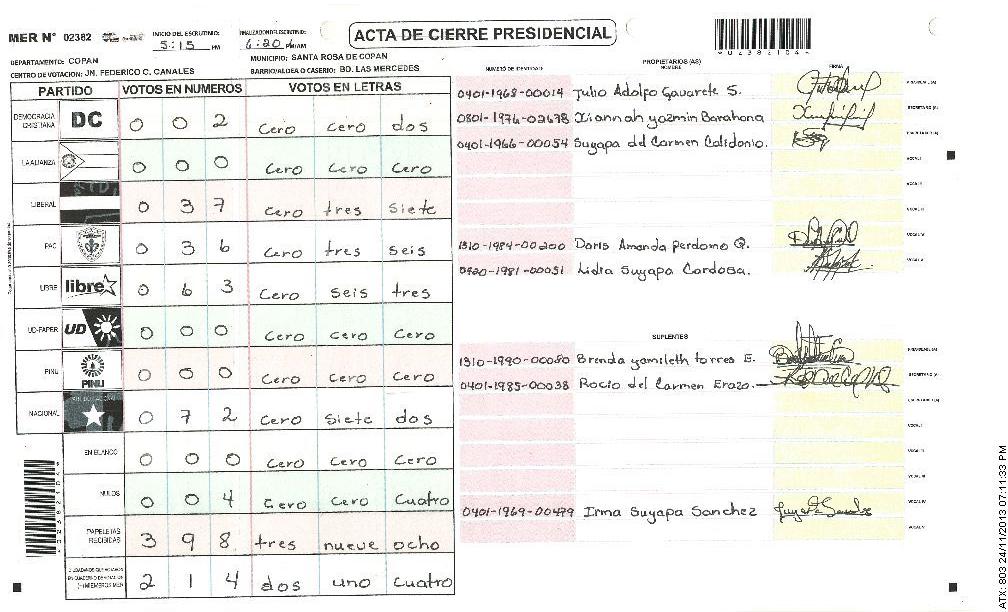 MER N° 02382
INICIO DEL ESCRUTINIO: 5:15 PM
FINALIZACION DEL ESCRUTINIO: 6:20 PM/AM
ACTA DE CIERRE PRESIDENCIAL
DEPARTAMENTO: COPAN
MUNICIPIO: SANTA ROSA DE COPAN
CENTRO DE VOTACION: JN. FEDERICO C. CANALES
BARRIO/ALDEA O CASERIO: BO. LAS MERCEDES
PARTIDO VOTOS EN NUMEROS VOTOS EN LETRAS
DEMOCRACIA CRISTIANA DC 0 0 2 Cero Cero dos
LA ALIANZA 0 0 0 Cero Cero Cero
LIBERAL 0 3 7 Cero tres siete
PAC 0 3 6 Cero tres seis
LIBRE libre 0 6 3 Cero seis tres
UD-FAPER UD 0 0 0 Cero Cero Cero
PINU PINU 0 0 0 Cero Cero Cero
NACIONAL 0 7 2 Cero Siete dos
EN BLANCO 0 0 0 Cero Cero Cero
NULOS 0 0 4 Cero Cero Cuatro
PAPELETAS RECIBIDAS 3 9 8 tres nueve ocho
CIUDADANOS QUE VOTARON EN CUADERNO DE VOTACION (+) MIEMBROS MER 2 1 4 dos uno Cuatro
PROPIETARIOS (AS)
NUMERO DE IDENTIDAD NOMBRE FIRMA
0401-1968-00014 Julio Adolfo Gavarete S. PRESIDENTE (A)
0801-1976-02678 Xiannah yazmin Barahona SECRETARIO (A)
0401-1966-00054 Suyapa del Carmen Calidonio. ESCRUTADOR (A)
VOCAL I
VOCAL II
VOCAL III
1310-1984-00200 Doris Amanda Perdomo Q. VOCAL IV
0420-1981-00051 Lidia Suyapa Cardosa. VOCAL V
SUPLENTES
1310-1990-00080 Brenda yamileth torres E. PRESIDENTE (A)
0401-1985-00038 Rocio del Carmen Erazo. SECRETARIO (A)
ESCRUTADOR (A)
VOCAL I
VOCAL II
VOCAL III
0401-1969-00479 Irma Suyapa Sanchez VOCAL IV
VOCAL V
ATX: 803 24/11/2013 07:11:33 PM